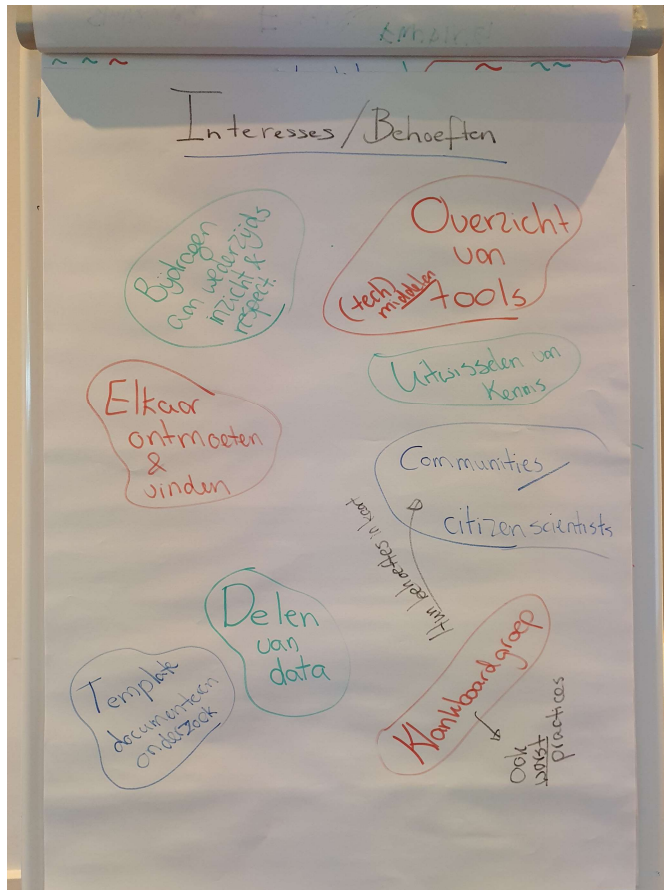 Interesses/Behoeften
Bijdragen
aan wederzijds
inzicht & 
respect
Overzicht
van
(tech)
middelen
tools
Uitwisselen van
Kennis
Elkaar
ontmoeten
&
vinden
Communities/
citizen scientists
Hun behoeftes in kaart
Delen
van
data
Template
documenteren
onderzoek
Klankboardgroep
Ook
worst
practices